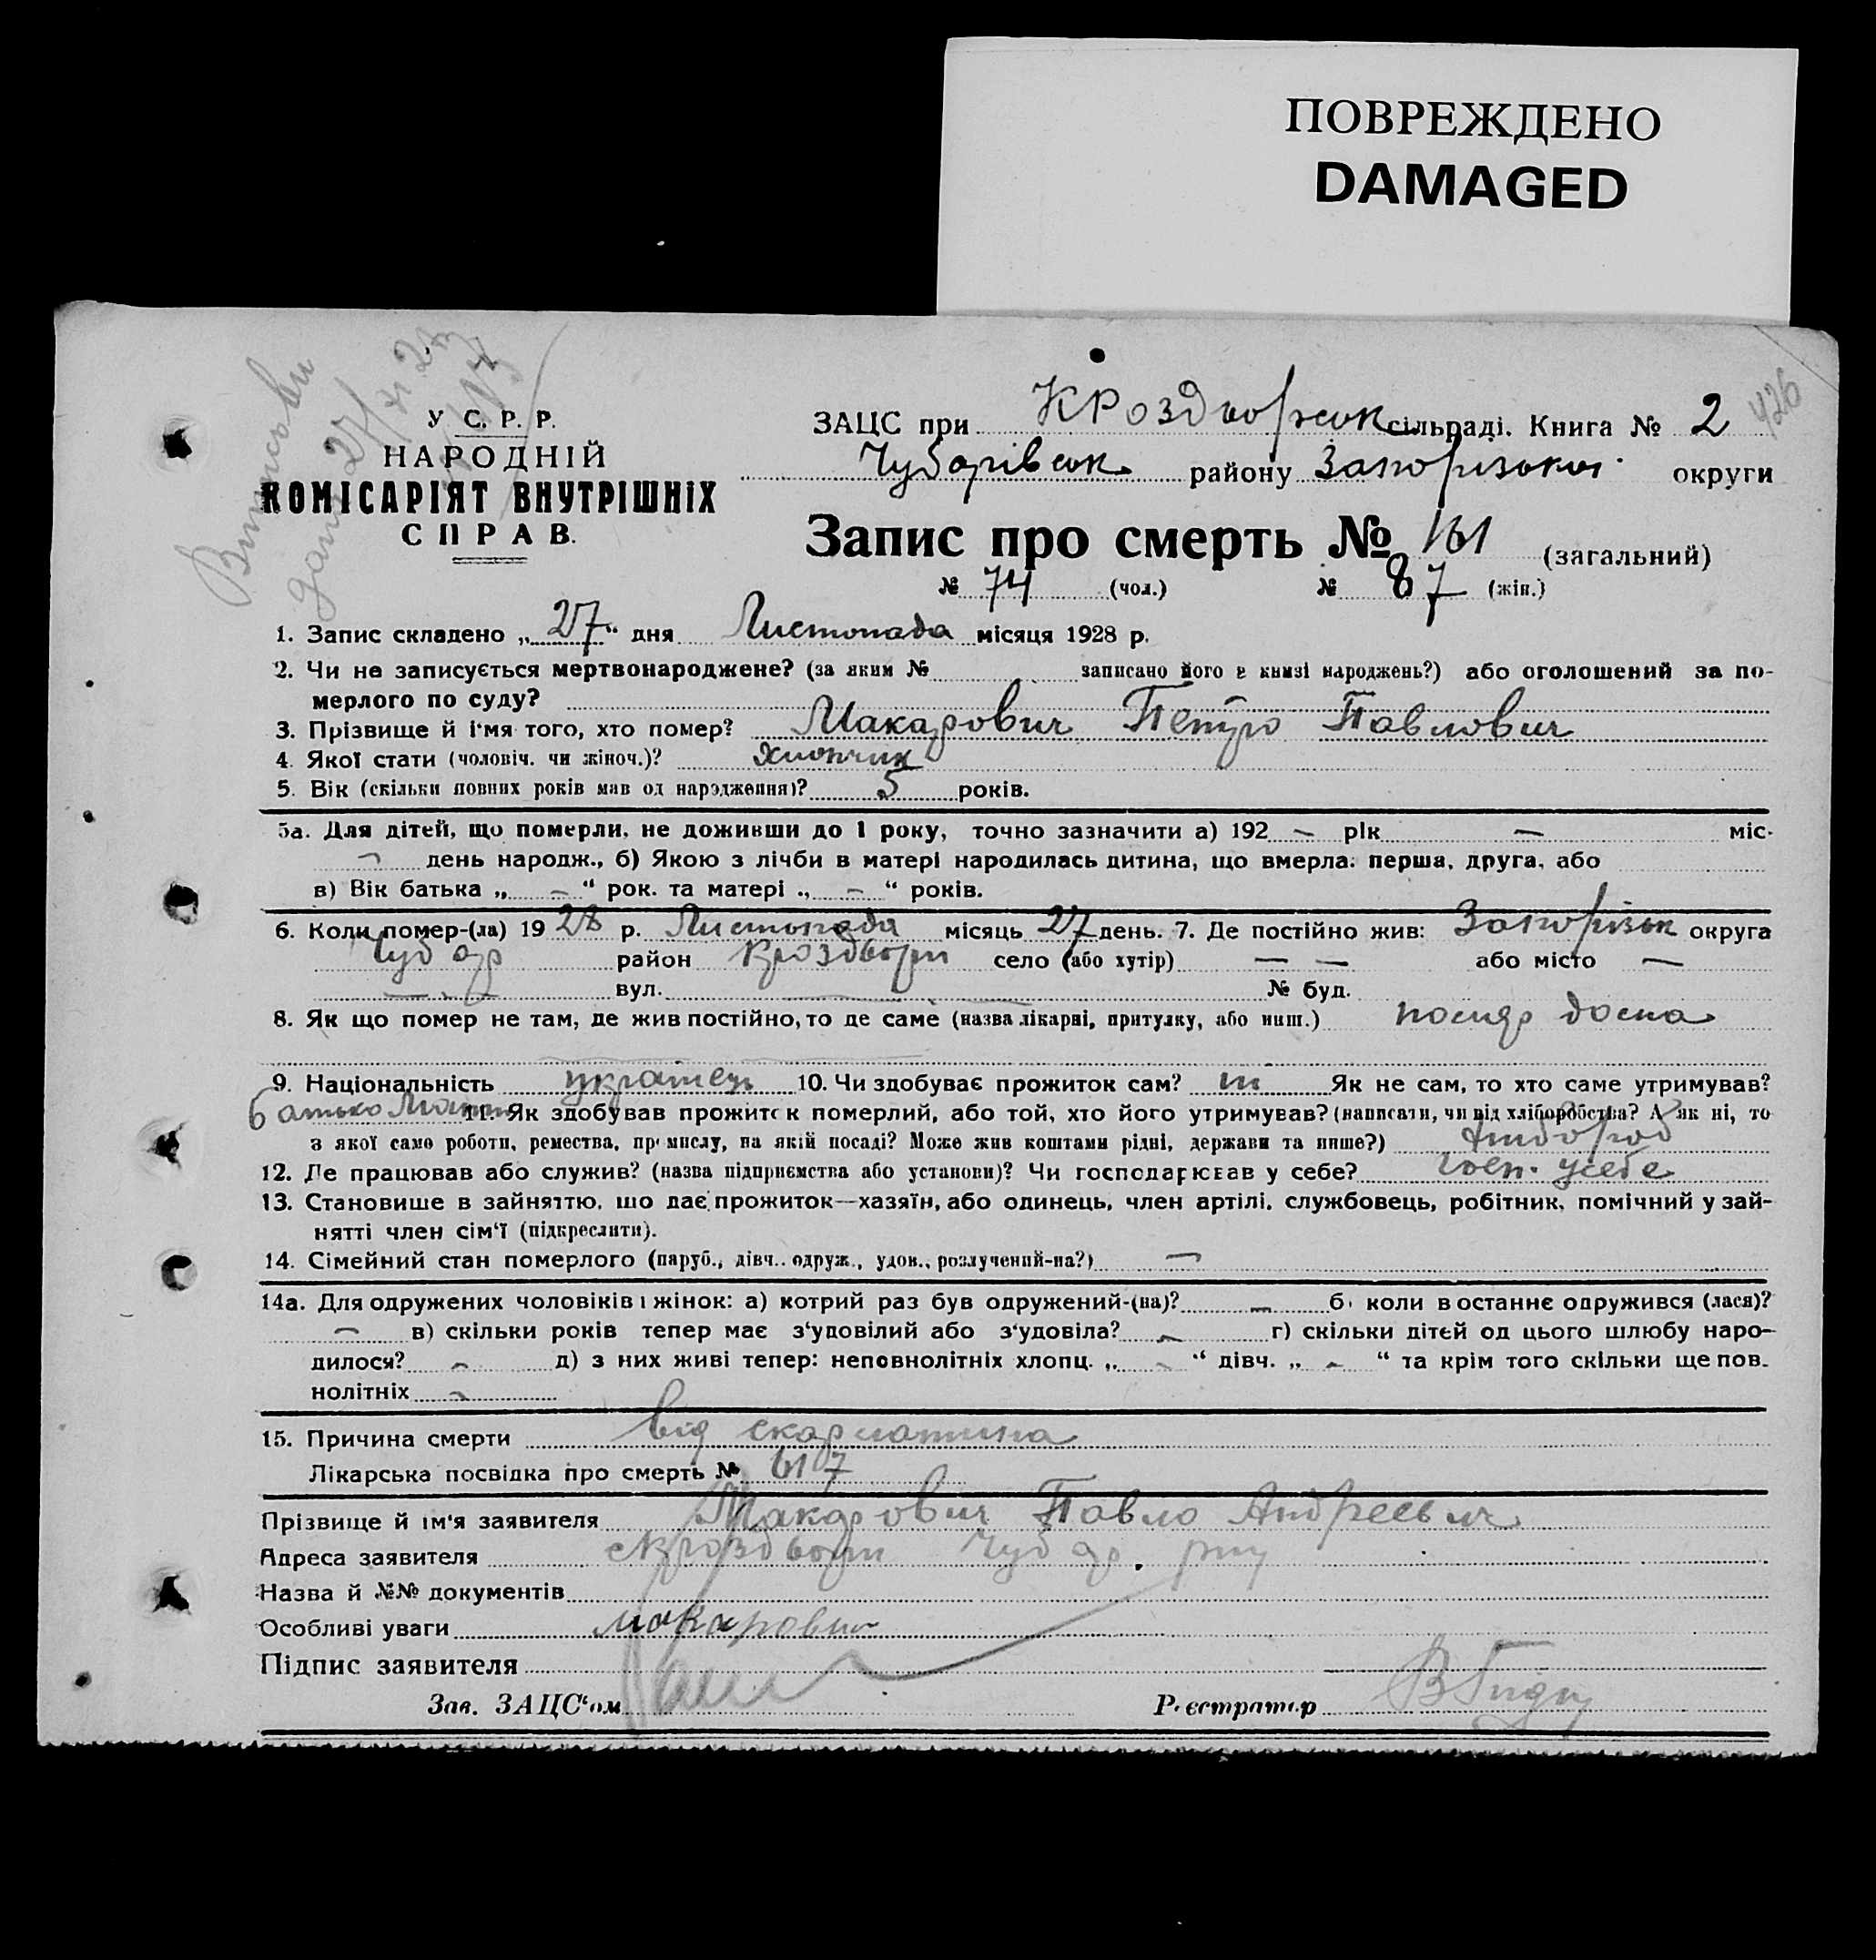 ПОВРЕЖДЕНО
DAMAGED
426
У С. Р. Р.
НАРОДНІЙ
КОМІСАРІЯТ ВНУТРІШНІХ
СПРАВ.
ЗАЦС при КРоздорськ сільраді. Книга № 2
Чубарівськ. району Запорізької округи
Запис про смерть № 161 (загальний)
№ 74 (чол.) № 87 (жін.)
1. Запис складено „ 27 “ дня Листопада місяця 1928 р.
2. Чи не записується мертвонароджене? (за яким № записано його в книзі народжень?) або оголошений за по-
мерлого по суду?
3. Прізвище й ім‘я того, хто помер? Макарович Петро Павлович
4. Якої стати (чоловіч. чи жіноч.)? хлопчик
5. Вік (скільки повних років мав од народження)? 5 років.
5а. Для дітей, що померли, не доживши до 1 року, точно зазначити а) 192 — рік — міс.
— день народж., б) Якою з лічби в матері народилась дитина, що вмерла: перша, друга, або
в) Вік батька „ — “ рок. та матері „ — “ років.
6. Коли помер-(ла) 19 28 р. Листопада місяць 27 день. 7. Де постійно жив: Запорізьк округа
Чубар район село (або хутір) — — або місто —
— . — вул. № буд.
8. Як що помер не там, де жив постійно, то де саме (назва лікарні, притулку, або инш.)
9. Національність українець 10. Чи здобуває прожиток сам? ні Як не сам, то хто саме утримував?
батько 11. Як здобував прожиток померлий, або той, хто його утримував? (написати, чи від хліборобства? А як ні, то
з якої само роботи, ремества, промислу, на якій посаді? Може жив коштами рідні, держави та инше?) хлібороб
12. Де працював або служив? (назва підприємства або установи)? Чи господарював у себе? госп. усебе
13. Становище в зайняттю, що дає прожиток—хазяїн, або одинець, член артілі, службовець, робітник, помічний у зай-
нятті член сім‘ї (підкреслити).
14. Сімейний стан померлого (паруб., дівч., одруж., удов., розлучений-на?) —
14а. Для одружених чоловіків і жінок: а) котрий раз був одружений-(на)? — б) коли востаннє одружився (лася)?
— в) скільки років тепер має з‘удовілий або з‘удовіла? — г) скільки дітей од цього шлюбу наро-
дилося? — д) з них живі тепер: неповнолітніх хлопц. „ — “ дівч. „ — “ та крім того скільки ще пов.
нолітніх —
15. Причина смерти від скарлатина
Лікарська посвідка про смерть № 617
Прізвище й ім‘я заявителя Макарович Павло Андреевич
Адреса заявителя Чубар.
Назва й №№ документів
Особливі уваги Макарович
Підпис заявителя
Зав. ЗАЦС‘ом
Реєстратор